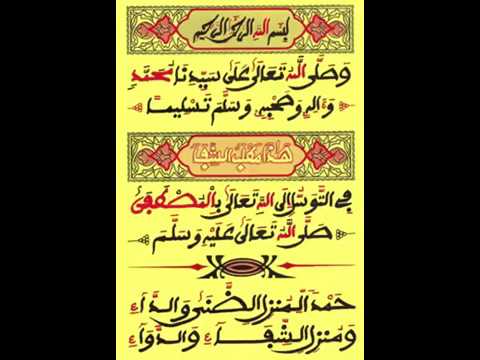 بِسْمِ اللَّهِ الرَّحْمَنِ الرَّحِيمِ
وَصَلَّى اللَّهُ تَعَالَى عَلَى سَيِّدِنَا مُحَمَّدٍ
وَءَالِهِ وَصَحْبِهِ وَسَلَّمَ تَسْلِيمًا
هَذَا مَفْلَبَةُ الشِّفَا
فِي التَّوَسُّلِ إِلَى اللَّهِ تَعَالَى بِالْمُصْطَفَى
صَلَّى اللَّهُ تَعَالَى عَلَيْهِ وَسَلَّمَ
حَمْدًا لِمُنْزِلِ الضَّنَى وَالدَّاءِ
وَمُنْزِلِ الشِّفَاءِ وَالدَّوَاءِ